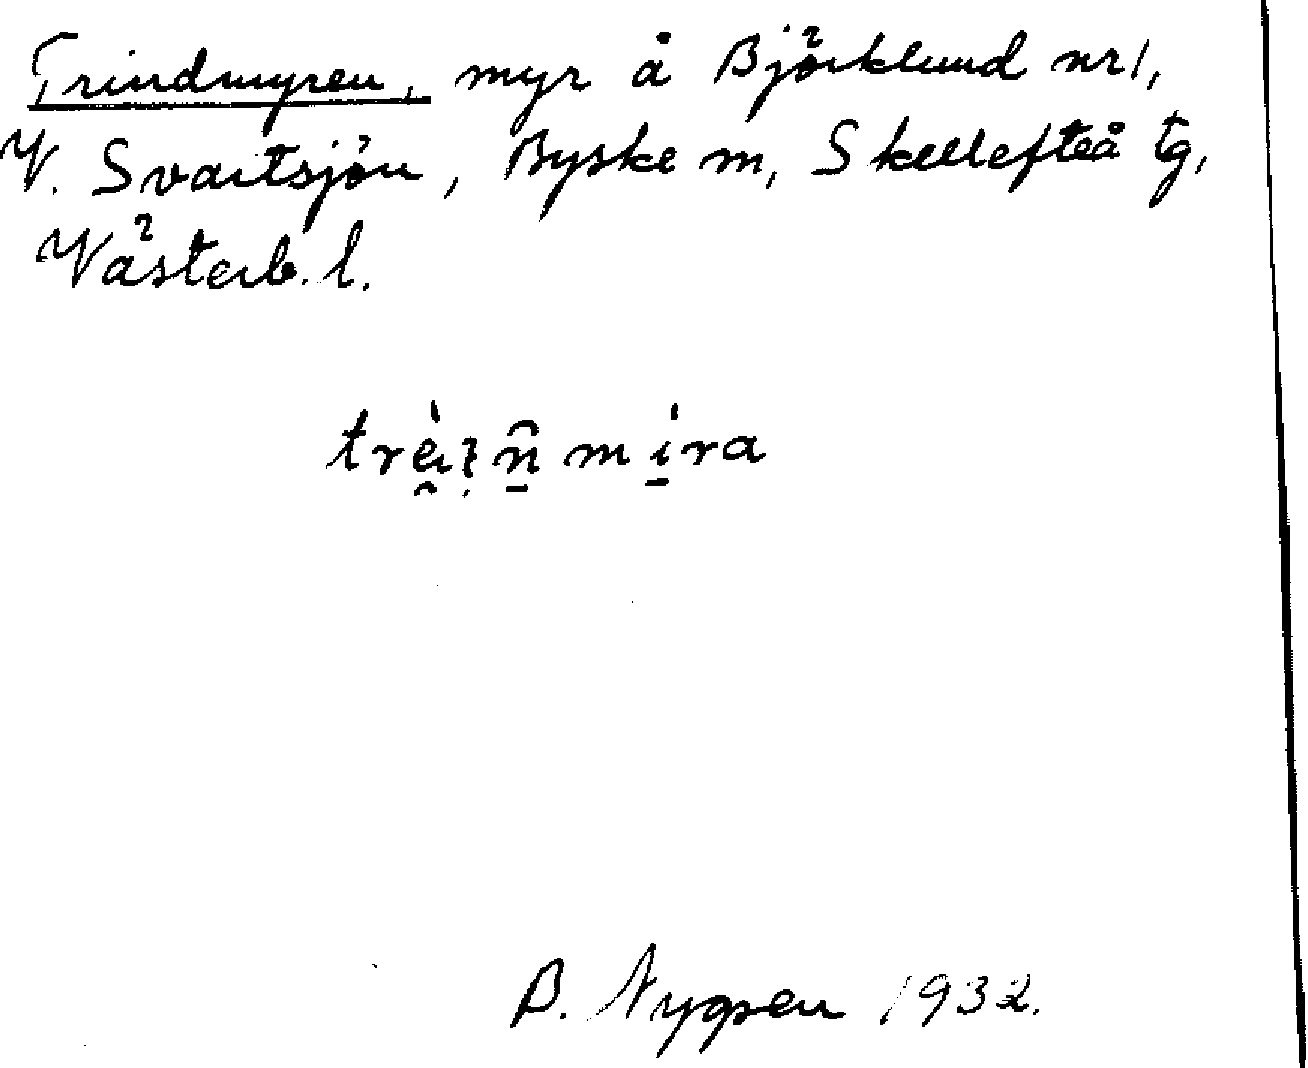 Trindmyren, myr å Björklund nr 1,
V. Svartsjön, Byske m, Skellefteå tg,
Västerb. l.
B. Nygren 1932.